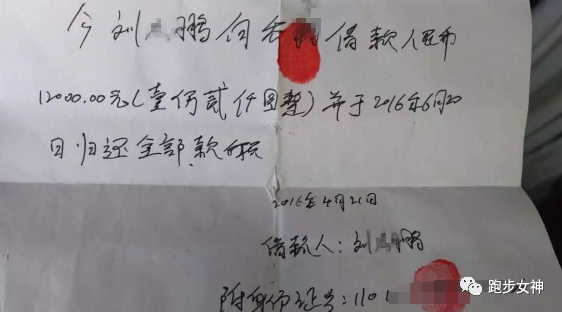 今刘鹏向借款人民币
12000.00元(壹贰仟圆整)并于2016年6月20
日归还全部款项
2016年4月21日
借款人:刘鹏
附身份证号:1101
跑步女神